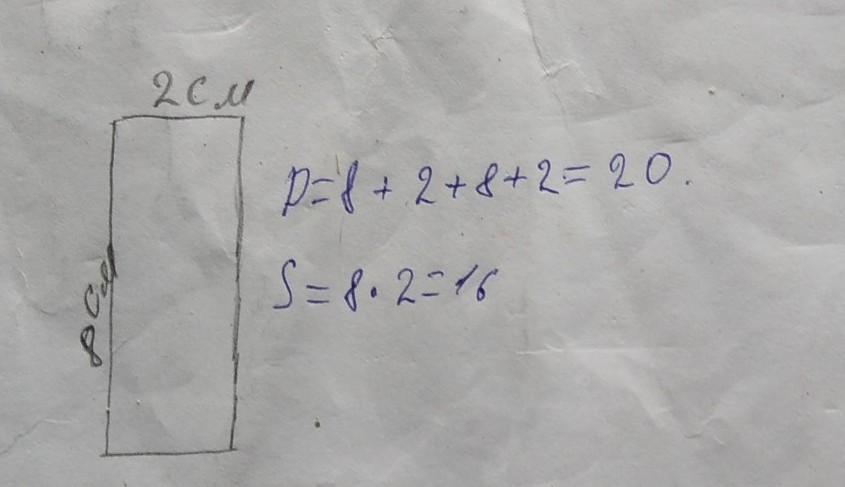 2 см
8 см
P=8+2+8+2=20.
S=8·2=16